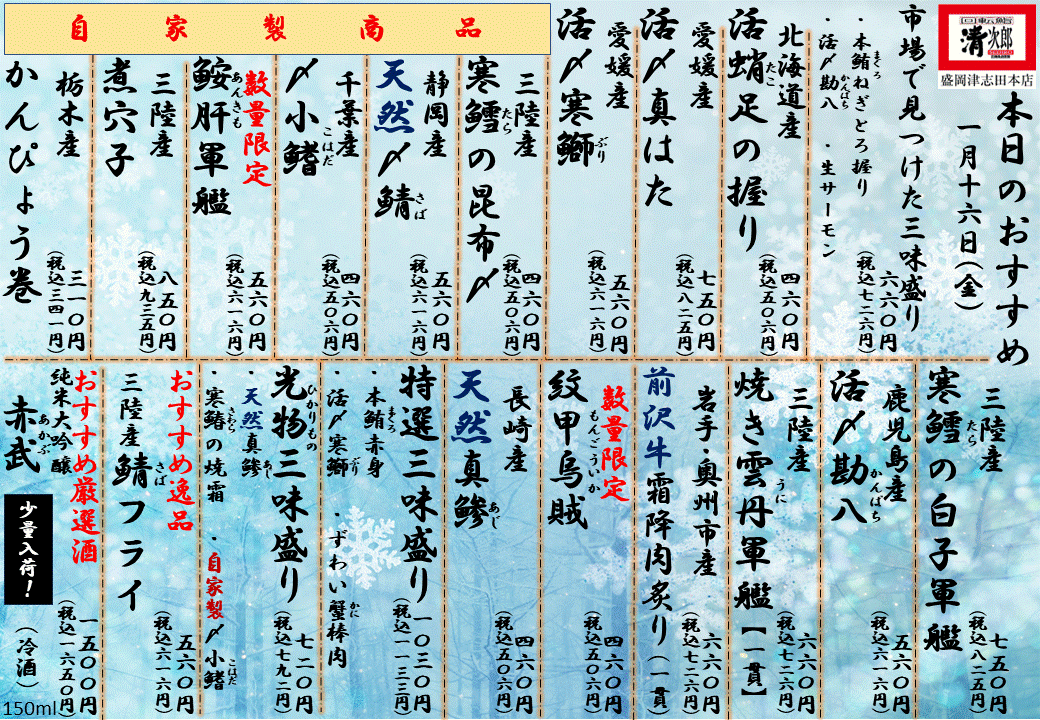 回転鮨
清次郎
盛岡津志田本店
本日のおすすめ
一月十六日(金)
市場で見つけた三味盛り
・本鮪ねぎとろ握り
まぐろ
・活〆勘八
かんぱち
・生サーモン
六六〇円
(税込七二六円)
北海道産
活蛸足の握り
たこ
四六〇円
(税込五〇六円)
愛媛産
活〆真はた
七五〇円
(税込八二五円)
愛媛産
活〆寒鰤
ぶり
五六〇円
(税込六一六円)
自家製商品
三陸産
寒鱈の昆布〆
たら
四六〇円
(税込五〇六円)
静岡産
天然〆鯖
さば
五六〇円
(税込六一六円)
千葉産
〆小鰭
こはだ
四六〇円
(税込五〇六円)
数量限定
鮟肝軍艦
あんきも
五六〇円
(税込六一六円)
三陸産
煮穴子
八五〇円
(税込九三五円)
栃木産
かんぴょう巻
三一〇円
(税込三四一円)
三陸産
寒鱈の白子軍艦
たら
七五〇円
(税込八二五円)
鹿児島産
活〆勘八
かんぱち
五六〇円
(税込六一六円)
三陸産
焼き雲丹軍艦【一貫】
うに
六六〇円
(税込七二六円)
岩手・奥州市産
前沢牛霜降肉炙り(一貫)
六六〇円
(税込七二六円)
数量限定
紋甲烏賊
もんごういか
四六〇円
(税込五〇六円)
長崎産
天然真鯵
あじ
四六〇円
(税込五〇六円)
特選三味盛り
・本鮪赤身
まぐろ
・活〆寒鰤
ぶり
・ずわい蟹棒肉
かに
一〇三〇円
(税込一一三三円)
光物三味盛り
ひかりもの
・天然真鯵
あじ
・寒鰆の焼霜
さわら
・自家製〆小鰭
こはだ
七二〇円
(税込七九二円)
おすすめ逸品
三陸産鯖フライ
さば
五六〇円
(税込六一六円)
おすすめ厳選酒
純米大吟醸
赤武
あかぶ
少量入荷!
一五〇〇円
(税込一六五〇円)
(冷酒)
150ml